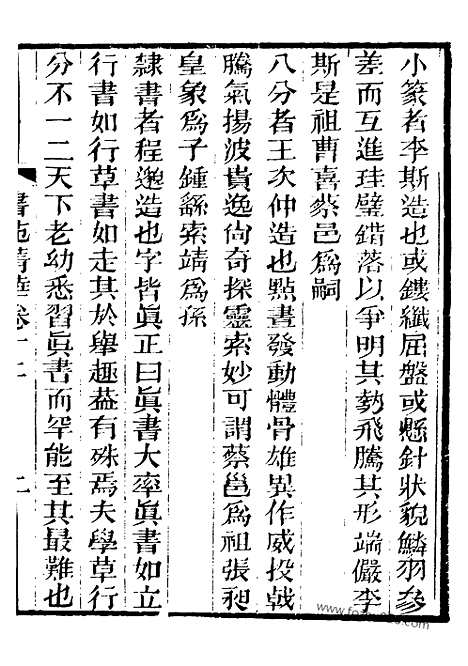 小篆者李斯造也或鏤纖屈盤或懸針狀貌鱗羽參
差而互進珪璧錯落以爭明其勢飛騰其形端儼李
斯是祖曹喜蔡邑爲嗣
八分者王次仲造也點畫發動體骨雄異作威投戟
騰氣揚波貴逸尙奇探靈索妙可謂蔡邕爲祖張昶
皇象爲子鍾繇索靖爲孫
隸書者程邈造也字皆眞正曰眞書大率眞書如立
行書如行草書如走其於舉趣葢有殊焉夫學草行
分不一二天下老幼悉習眞書而罕能至其最難也
書苑菁華卷十二
二